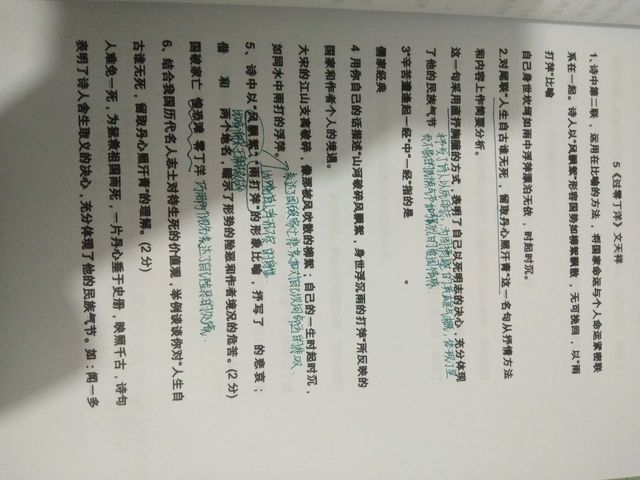 5《过零丁洋》文天祥
1、诗中第二联，运用在比喻的方法，将国家命运与个人命运紧密联
系在一起。诗人以"风飘絮"形容国势如柳絮飘散，无可挽回，以"雨
打萍"比喻
自己身世坎坷如雨中浮萍漂泊无依，时起时沉。
2.对尾联"人生自古谁无死，留取丹心照汗青"这一名句从抒情方法
和内容上作简要分析。
这一句采用直抒胸臆的方式，表明了自己以死明志的决心，充分体现
了他的民族气节
3"辛苦遭逢起一经"中"一经"指的是 。
儒家经典
4 用你自己的话描述"山河破碎风飘絮，身世浮沉雨的打萍"所反映的
国家和作者个人的境遇。
大宋的江山支离破碎，像那被风吹散的柳絮；自己的一生时起时沉，
如同水中雨打的浮萍
5、诗中以"风飘絮""雨打萍"的形象比喻，抒写了 的悲哀；
借 和 两个地名，暗示了形势的险恶和作者境况的危苦。(2 分)
国破家亡 惶恐滩 零丁洋
6、结合我国历代名人志士对待生死的价值观，举例谈谈你对"人生自
古谁无死，留取丹心照汗青"的理解。(2 分)
人难免一死，为拯救祖国而死，一片丹心垂于史册，映照千古，诗句
表明了诗人舍生取义的决心，充分体现了他的民族气节。如：闻一多